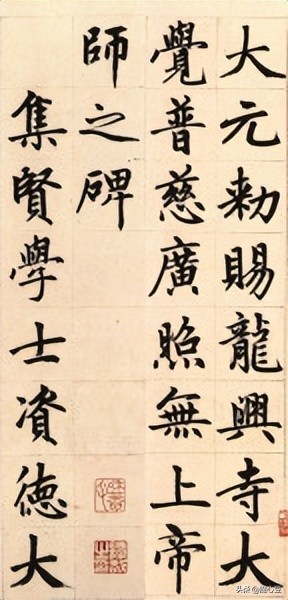 大元勅賜龍興寺大
覺普慈廣照無上帝
師之碑
集賢學士資德大
头条